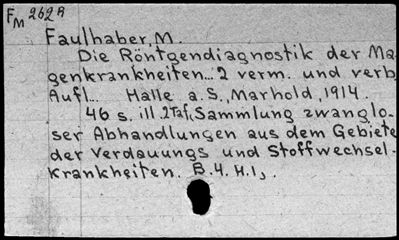 FM 262 A
Faulhaber, M.
Die Röntgendiagnostik der Ma-
genkrankheiten... 2 verm. und verb.
Aufl... Halle a. S., Marhold, 1914.
46 s. ill. 2 Taf. Sammlung zwanglo-
ser Abhandlungen aus dem Gebiete
der Verdauungs und Stoffwechsel-
krankheiten. B. 4. H. 1,.